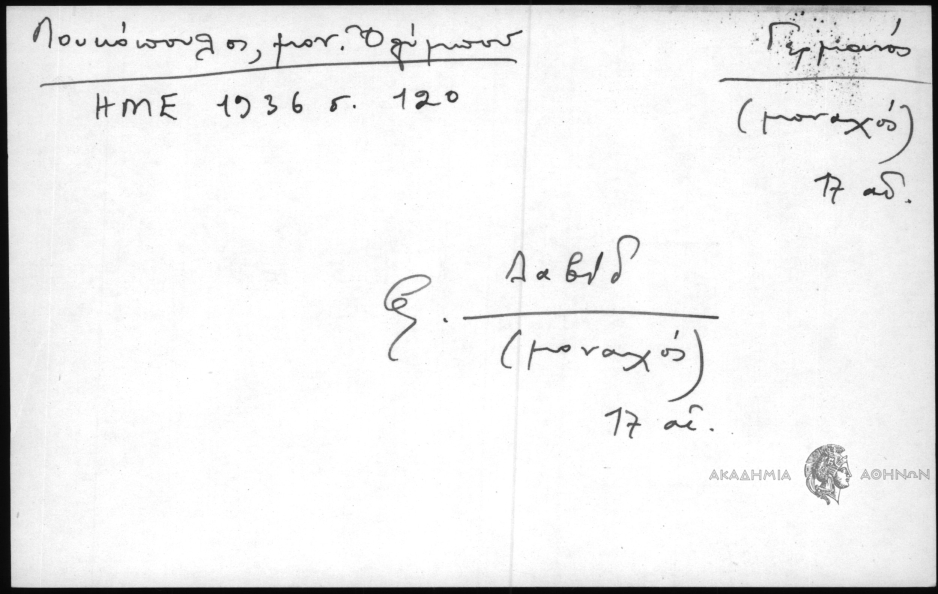 Λουκόπουλος, μον. Ὀλύμπου
ΗΜΕ 1936 σ. 120
Γερμανός
(μοναχός)
17 αἰ.
Δαβὶδ
(μοναχός)
17 αἰ.
ΑΚΑΔΗΜΙΑ ΑΘΗΝΩΝ